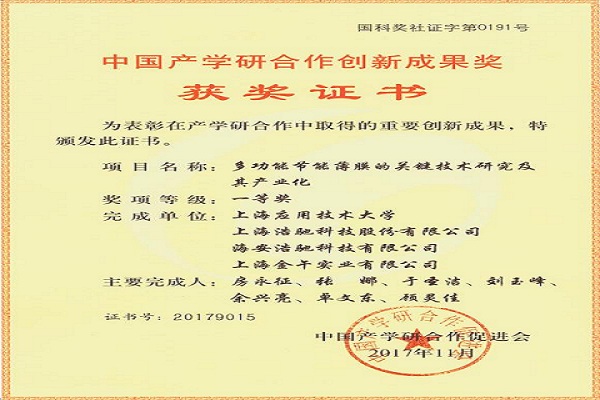 国科奖社证字第0191号
中国产学研合作创新成果奖
获奖证书
为表彰在产学研合作中取得的重要创新成果，特
颁发此证书。
项目名称：多功能节能薄膜的关键技术研究及
其产业化
奖项等级：一等奖
完成单位：上海应用技术大学
上海浩驰科技股份有限公司
海安浩驰科技有限公司
上海金午实业有限公司
主要完成人：房永征、张 娜、于圣洁、刘玉峰、
余兴亮、单文东、顾灵佳
证书号：20179015
中国产学研合作促进会
2017年11月
中国产学研合作促进会